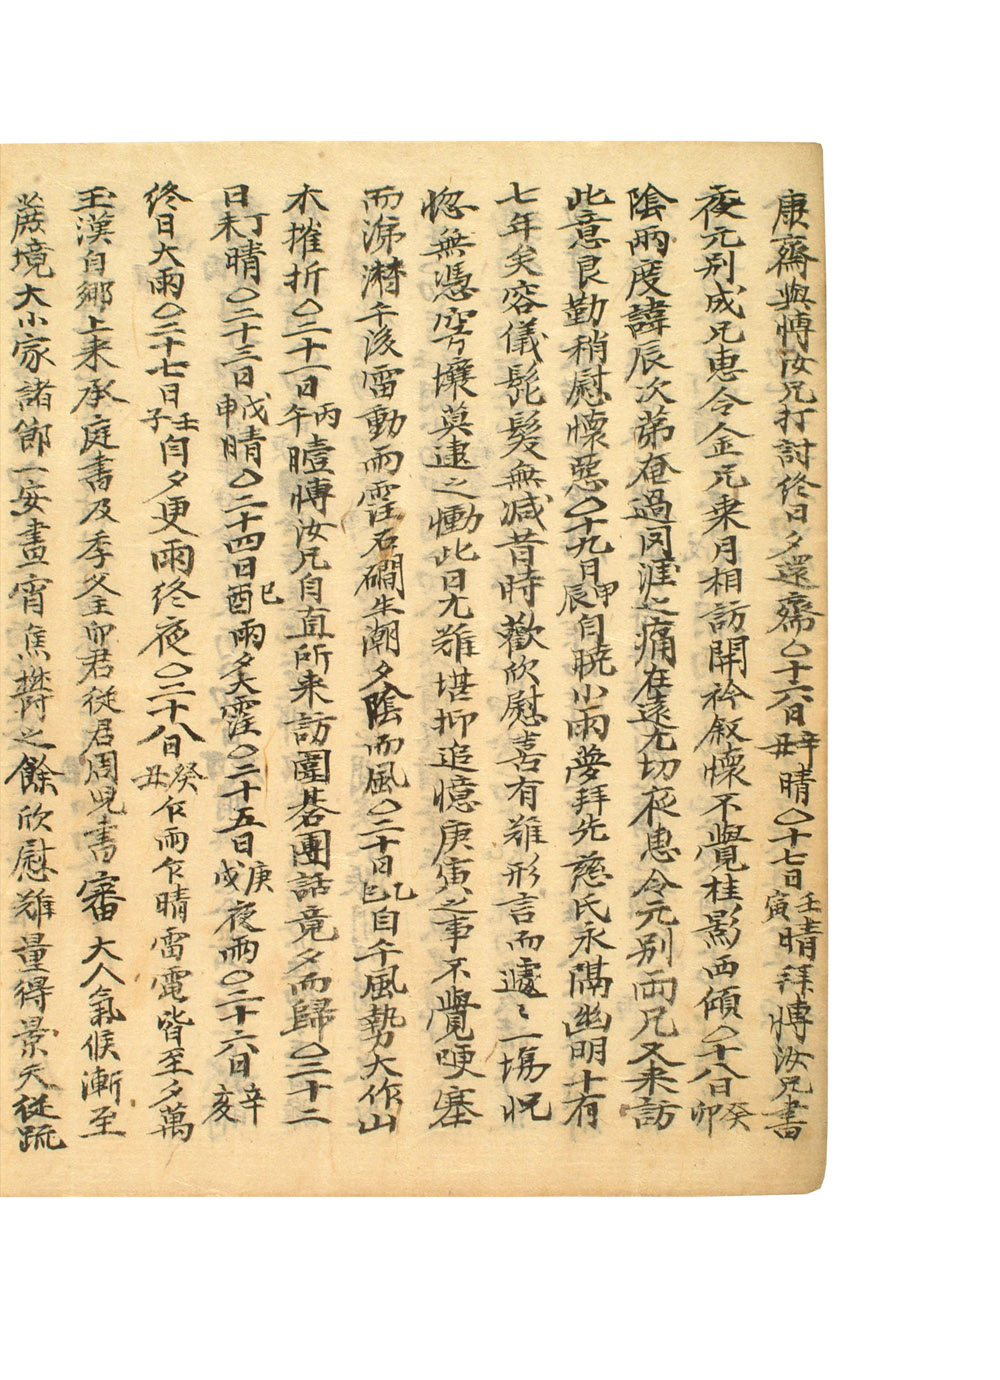 康齋與愽汝兄打討終日夕還齋○十六日辛丑晴○十七日壬寅晴拜愽汝兄書
夜元別成兄惠令金兄乘月相訪開衿叙懷不覺桂影西傾○十八日癸卯
陰兩度諱辰次第奄過罔涯之痛在遠尤切夜惠令元別兩兄又来訪
此意良勤稍慰懷惡○十九日甲辰自曉小雨夢拜先慈氏永隔幽明十有
七年矣容儀髭髮無减昔時歡欣慰喜有難形言而遽遽一塲怳
惚無憑穹壤莫逮之慟此日尤難堪抑追憶庚寅之事不覺哽塞
而涕潸午後雷動而霔石磵生潮夕陰而風○二十日乙巳自午風勢大作山
木摧折○二十一日丙午曀愽汝兄自直所来訪圍碁團話竟夕而歸○二十二
日丁未晴○二十三日戊申晴○二十四日己酉雨夕大霔○二十五日庚戌夜雨○二十六日辛亥
終日大雨○二十七日壬子自夕更雨終夜○二十八日癸丑乍雨乍晴雷電皆至夕萬
玉漢自鄉上来承庭書及季父主卯君從君周兒書審大人氣候漸至
蕨境大小家諸節一安晝宵焦欝之餘欣慰難量得景天從疏